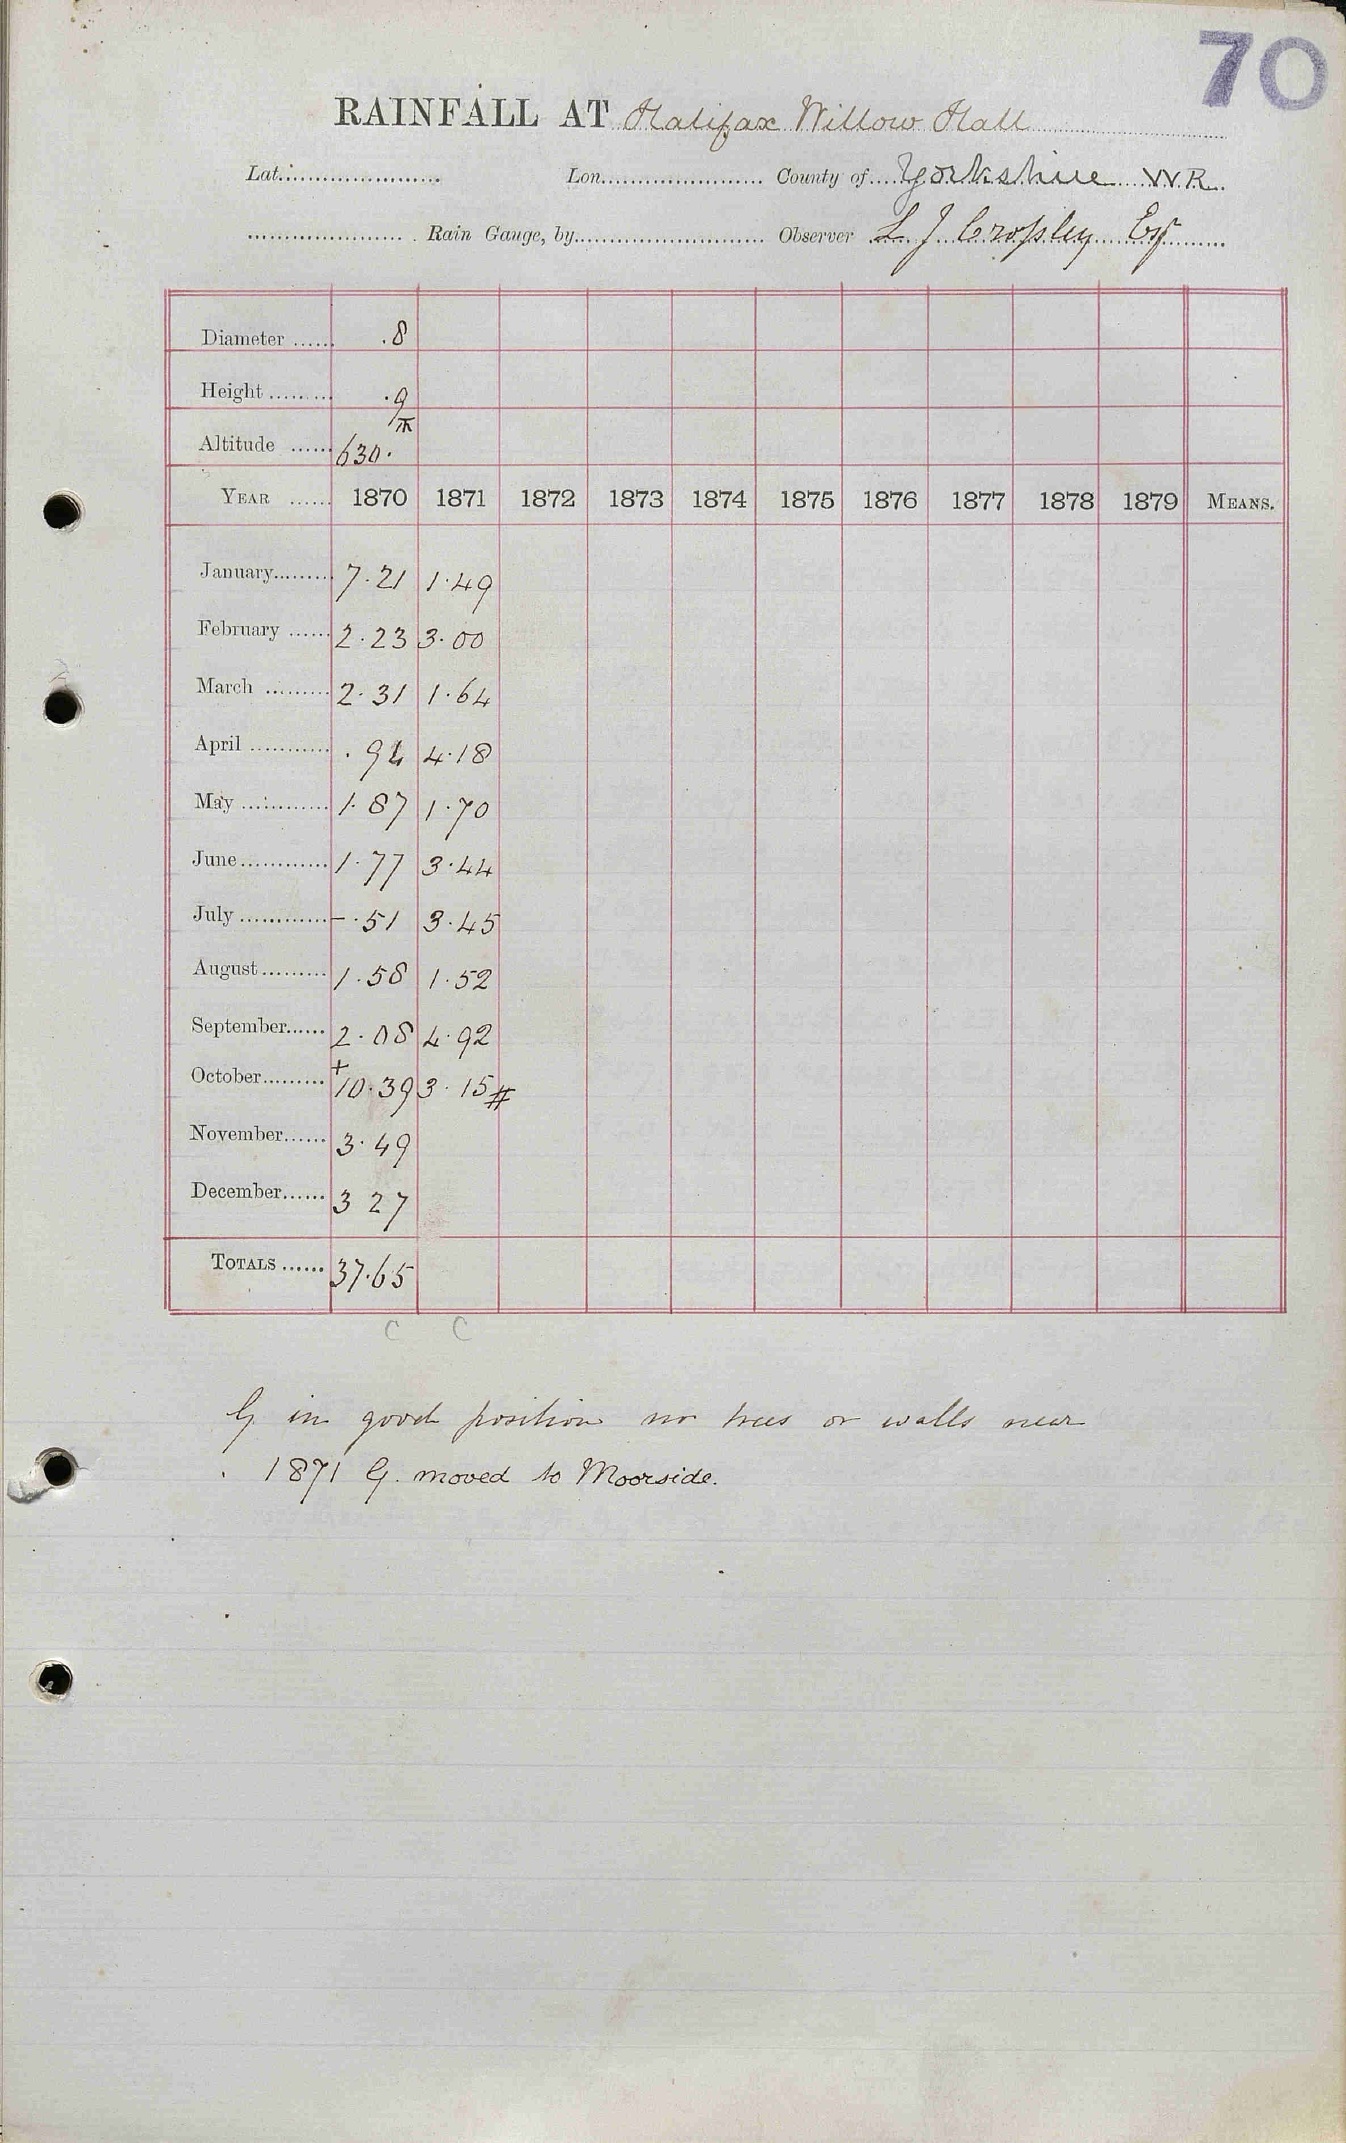 70
RAINFALL AT Halifax Willow Hall
Lat. Lon. County of Yorkshire W R
Rain Gauge, by Observer L J Crossley Esq
Diameter .8
Height .9
Altitude 630.
YEAR 1870 1871 1872 1873 1874 1875 1876 1877 1878 1879 MEANS.
January 7.21 1.49
February 2.23 3.00
March 2.31 1.64
April .94 4.18
May 1.87 1.70
June 1.77 3.44
July -.51 3.45
August 1.58 1.52
September 2.08 4.92
October +10.39 3.15#
November 3.49
December 3 27
TOTALS 37.65
C C
G in good position no trees or walls near
1871 G. moved to Moorside.